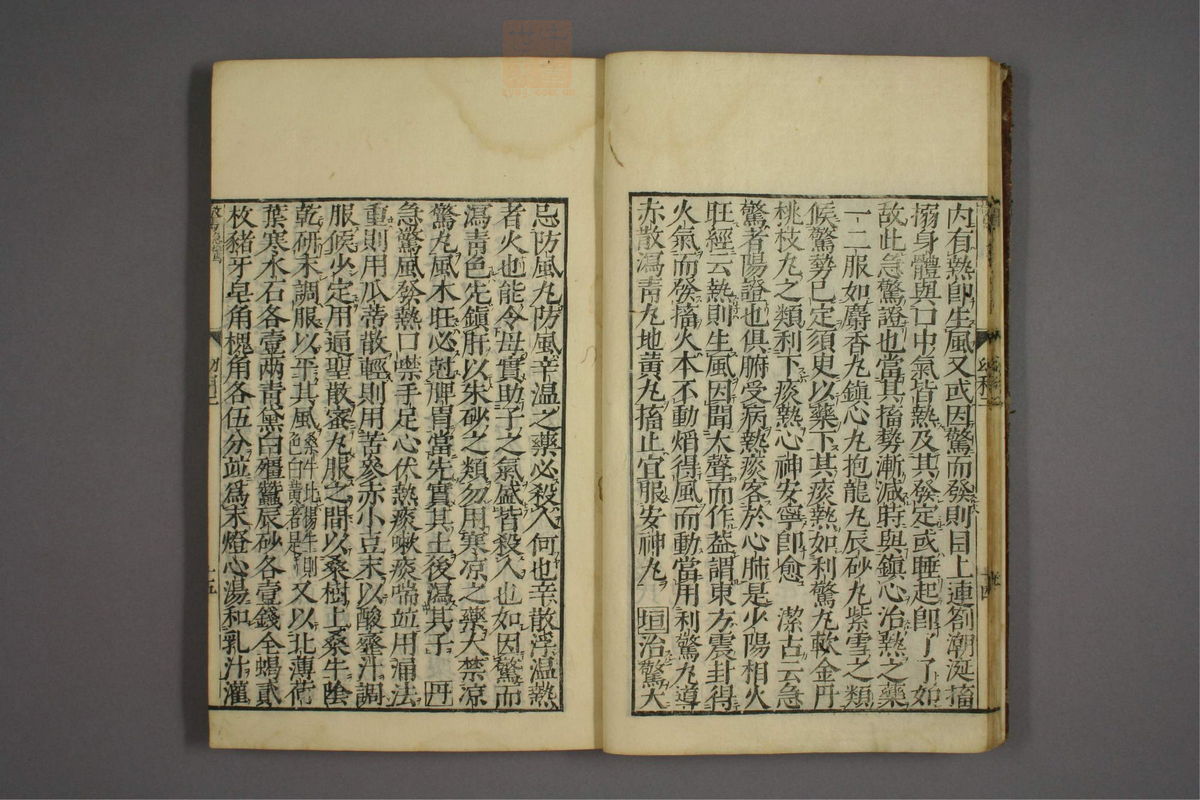 內有熱卽生風又或因驚而發則目上連劄潮涎搐
搦身體與口中氣皆熱及其發定或睡起卽了了如
故此急驚證也當其搐勢漸減時與鎭心治熱之藥
一二服如麝香丸鎭心丸抱龍丸辰砂丸紫雪之類
候驚勢已定須臾以藥下其痰熱如利驚丸軟金丹
桃枝丸之類利下痰熱心神安寧卽愈　潔古云急
驚者陽證也俱腑受病熱痰客於心肺是少陽相火
旺經云熱則生風因聞大聲而作蓋謂東方震卦得
火氣而發搐火本不動焰得風而動當用利驚丸導
赤散瀉靑丸地黃丸搐止宜服安神丸　垣治驚大
忌防風丸防風辛溫之藥必殺人何也辛散浮溫熱
者火也能令母實助子之氣盛皆殺人也如因驚而
瀉靑色先鎭肝以朱砂之類勿用寒凉之藥大禁凉
驚丸風木旺必尅脾胃當先實其土後瀉其子　丹
急驚風發熱口噤手足心伏熱痰嗽痰喘並用涌法
重則用瓜蒂散輕則用苦參赤小豆末以酸虀汁調
服候少定用通聖散蜜丸服之間以桑樹上桑牛陰
乾硏末調服以平其風桑牛比楊牛則色白黃者是又以北薄荷
葉寒水石各壹兩靑黛白殭蠶辰砂各壹錢全蝎貳
枚豬牙皂角槐角各伍分並爲末燈心湯和乳汁灌